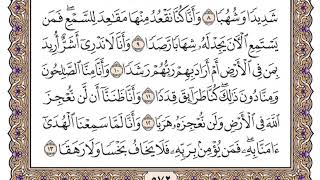 شَدِيدًا وَشُهُبًا ٨ وَأَنَّا كُنَّا نَقْعُدُ مِنْهَا مَقَٰعِدَ لِلسَّمْعِ ۖ فَمَن
يَسْتَمِعِ ٱلْـَٔانَ يَجِدْ لَهُۥ شِهَابًا رَّصَدًا ٩ وَأَنَّا لَا نَدْرِىٓ أَشَرٌّ أُرِيدَ
بِمَن فِى ٱلْأَرْضِ أَمْ أَرَادَ بِهِمْ رَبُّهُمْ رَشَدًا ١٠ وَأَنَّا مِنَّا ٱلصَّٰلِحُونَ
وَمِنَّا دُونَ ذَٰلِكَ ۖ كُنَّا طَرَآئِقَ قِدَدًا ١١ وَأَنَّا ظَنَنَّآ أَن لَّن نُّعْجِزَ
ٱللَّهَ فِى ٱلْأَرْضِ وَلَن نُّعْجِزَهُۥ هَرَبًا ١٢ وَأَنَّا لَمَّا سَمِعْنَا ٱلْهُدَىٰٓ
ءَامَنَّا بِهِۦ ۖ فَمَن يُؤْمِنۢ بِرَبِّهِۦ فَلَا يَخَافُ بَخْسًا وَلَا رَهَقًا ١٣
٥٧٢